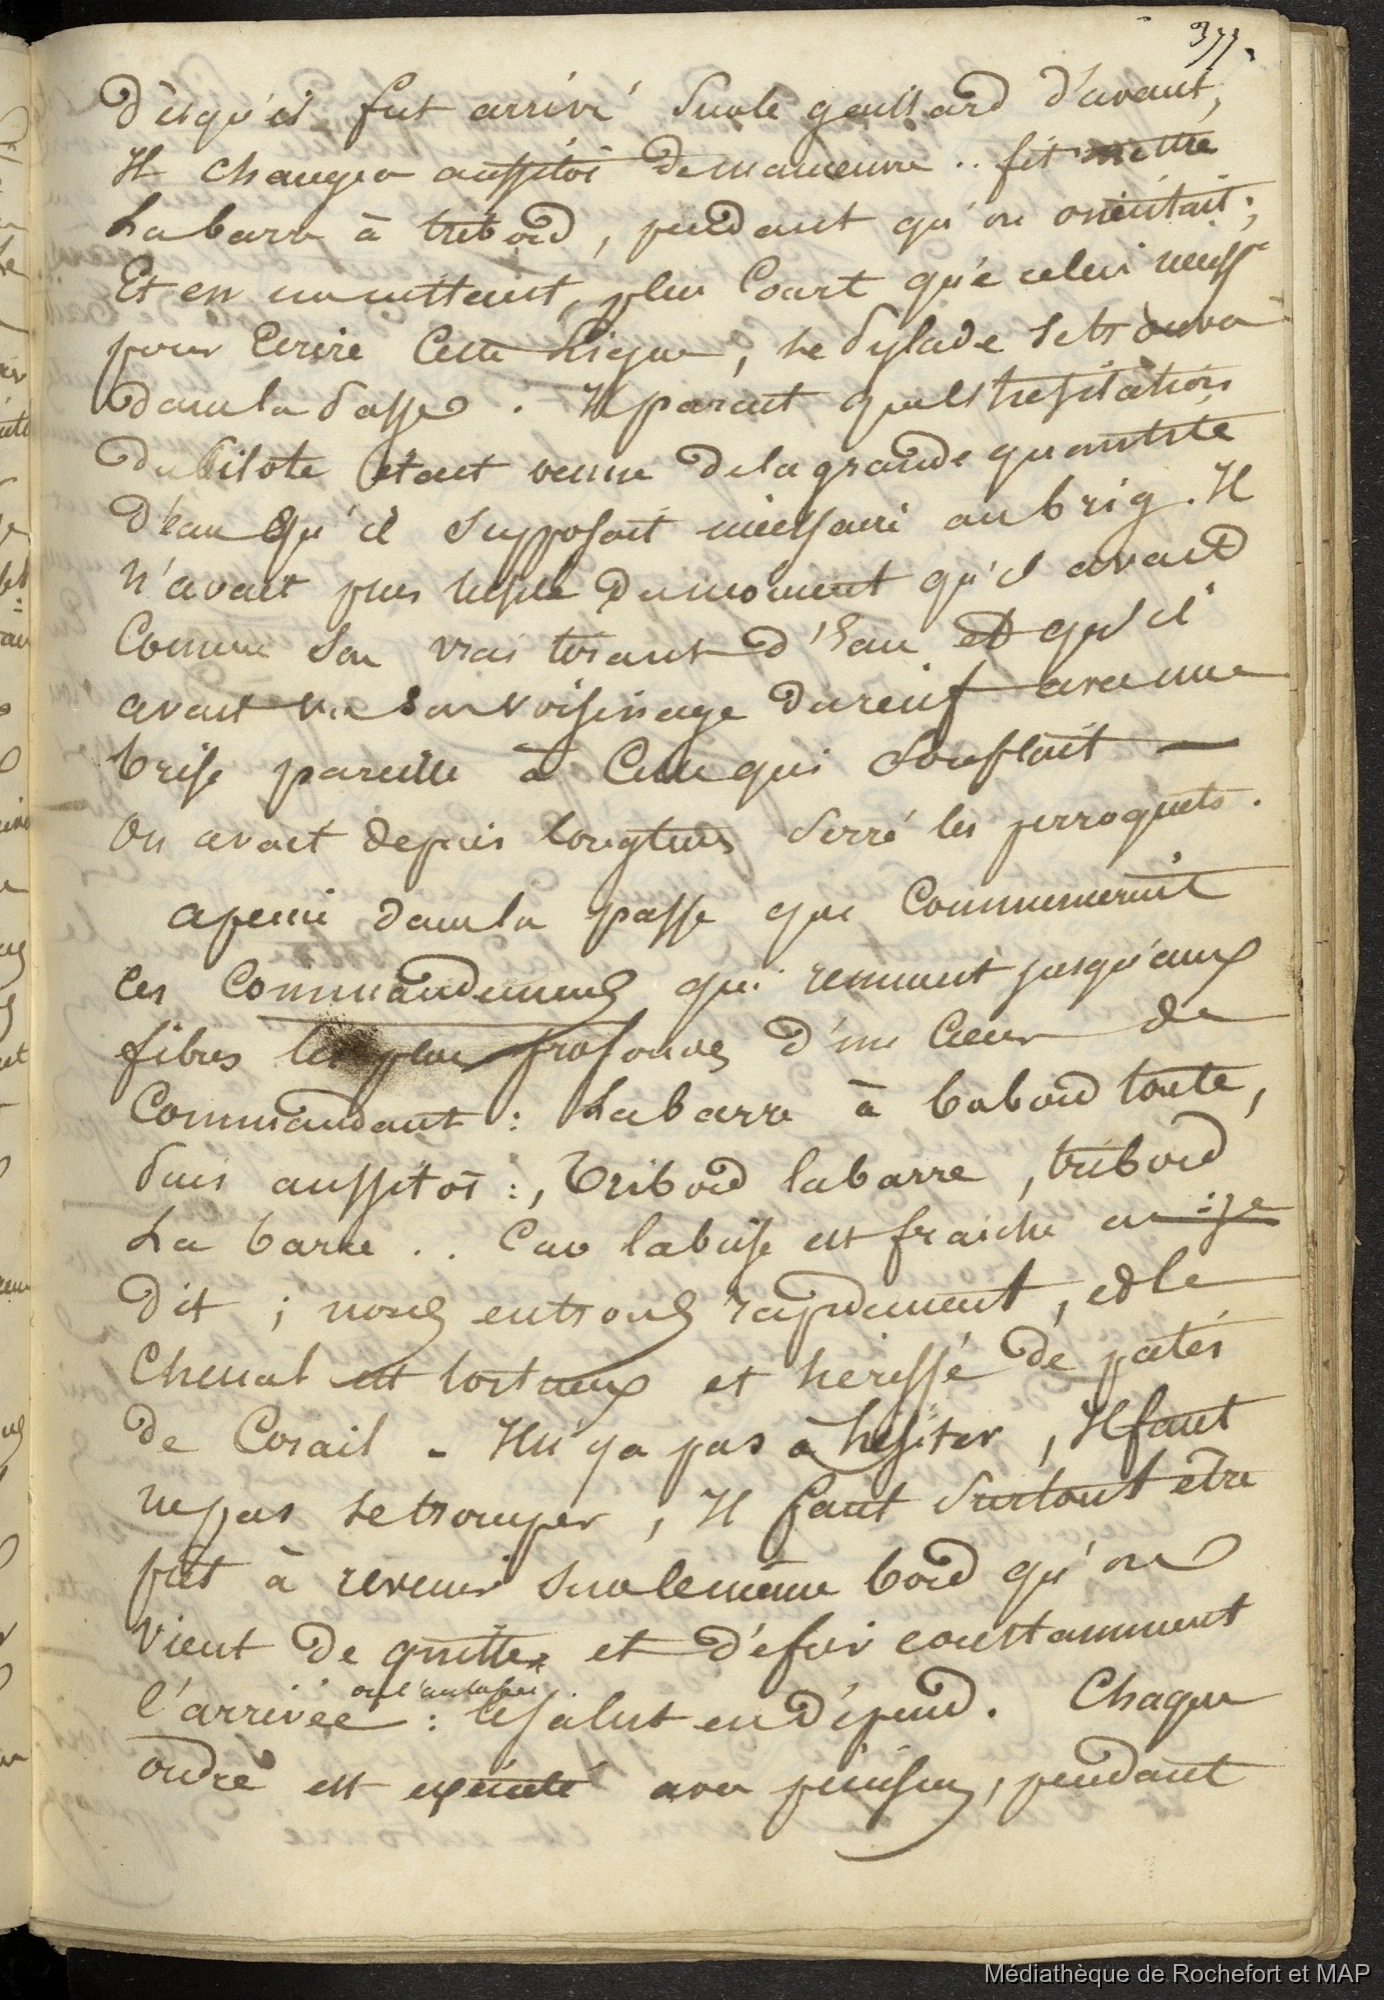 377.
Dès qu'il fut arrivé sur le gaillard d'avant,
Il changea aussitôt de manoeuvre .. fit mettre
La barre à tribord, pendant qu'on orientait;
Et en un instant, plus Court que celui
pour Ecrire Cette Ligne, le Pylade se trouva
dans la Passe. Il parait que l'hesitation
du Pilote etait venue de la grande quantité
d'Eau qu'il supposait nécessaire au brig. Il
n'avait plus hésité du moment qu'il avait
Connu son vrai tirant d'Eau et qu'il
avait vu son voisinage du reçif avec une
brise pareille à Celle qui soufflait —
On avait depuis longtems serré les perroquets.
apeine dans la passe que Commencerent
ces Commandemens qui remuent jusqu'aux
fibres les plus profondes d'un Coeur de
Commandant : La barre à babord toute,
Puis aussitôt :, Tribord la barre, tribord
La barre .. Car la brise est fraiche ai-je
dit ; nous entrons rapidement, et le
Chenal est tortueux et herissé de patés
de Corail - Il n'y a pas à hésiter, Il faut
ne pas se tromper, Il faut surtout être
prêt à revenir sur le même bord qu'on
vient de quitter et défier constamment
ou l'aulofée
l'arrivée : le salut en dépend. Chaque
ordre est exécuté avec précision, pendant
Médiathèque de Rochefort et MAP